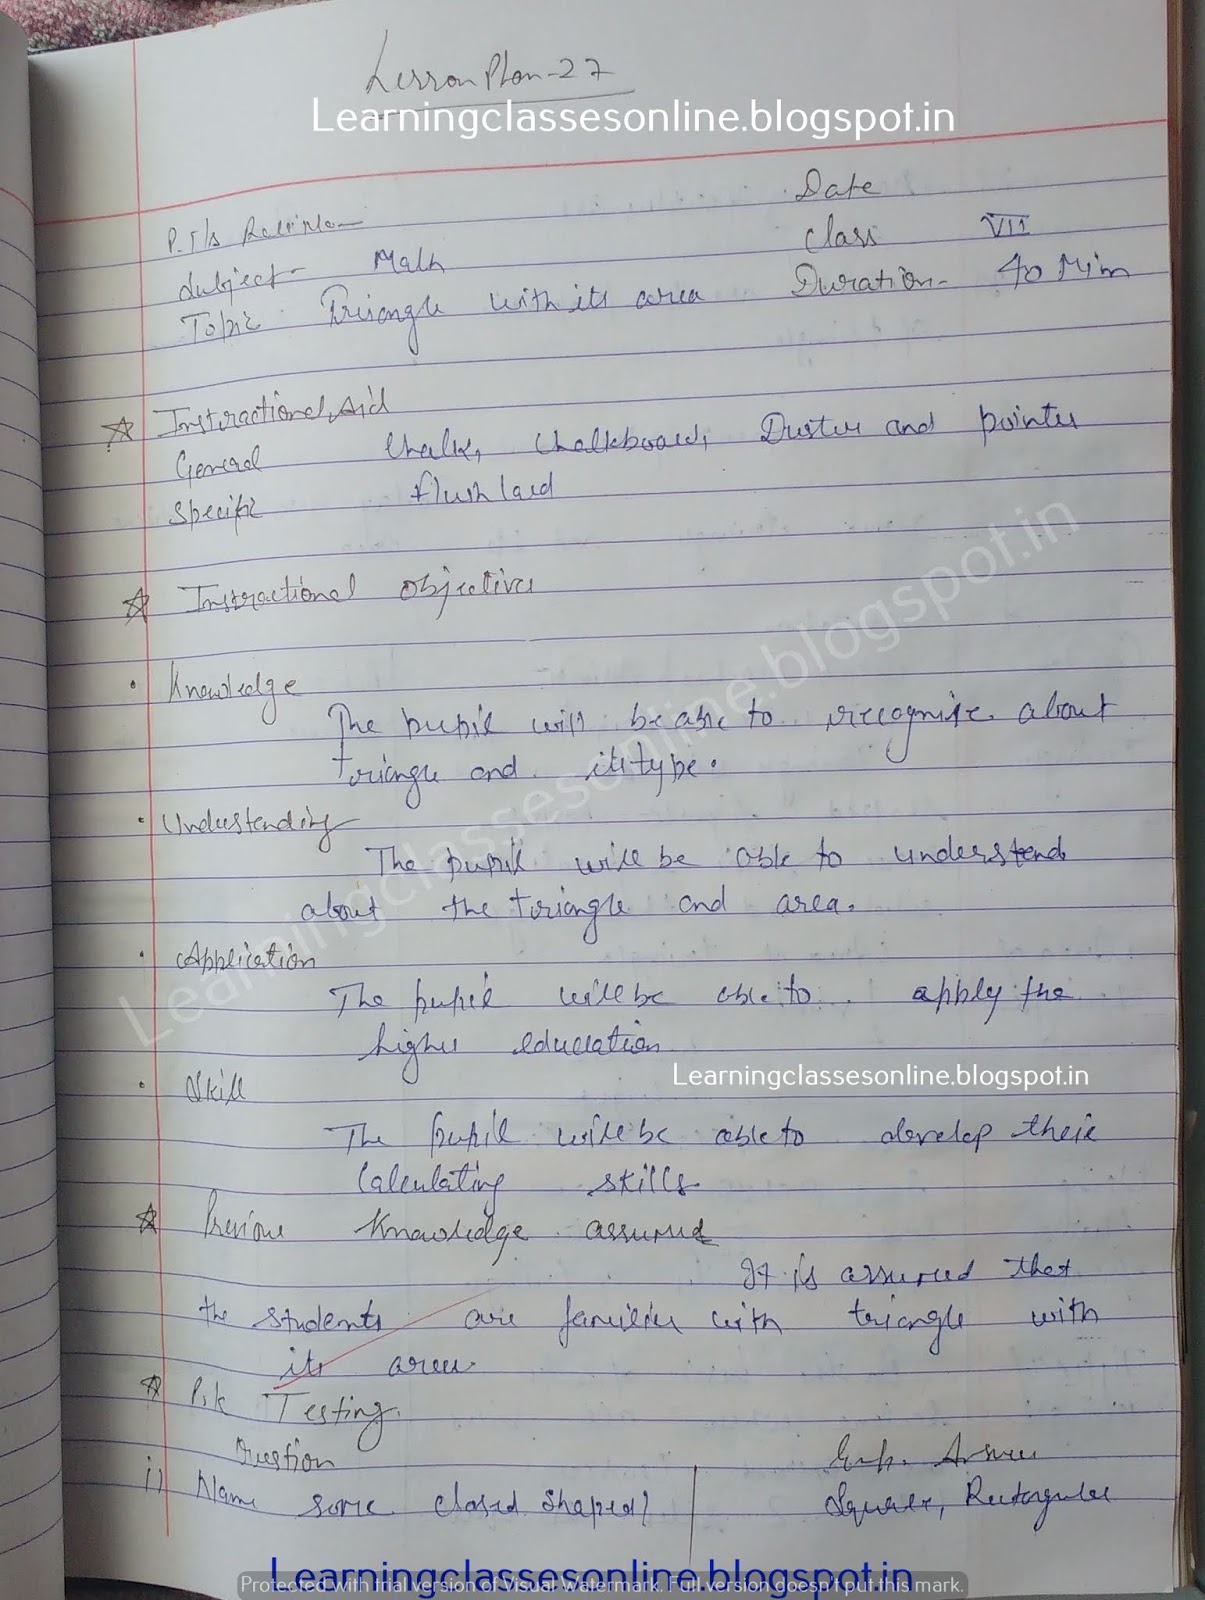 Lesson Plan-27
Learningclassesonline.blogspot.in
Date
P.T/s
Class VII
Subject- Math
Duration- 40 Min
Topic Triangle with its area
Instructional Aid
General Chalk, Chalkboard, Duster and pointer
Specific flush
Instructional objectives
Learningclassesonline.blogspot.in
• Knowledge
The pupil will be able to recognise about
triangle and its type.
• Understanding
The pupil will be able to understand
about the triangle and area.
• Application
The pupil will be able to apply the
higher education
Learningclassesonline.blogspot.in
• Skill
The pupil will be able to develop their
Calculating skills
Previous Knowledge assumed
It is assumed that
the students are familier with triangle with
its area.
P.k Testing.
Question Exp. Answer
i) Name some closed shaped? Square, Rectangular
Learningclassesonline.blogspot.in
Protected with trial version of Visual Watermark. Full version doesn't put this mark.